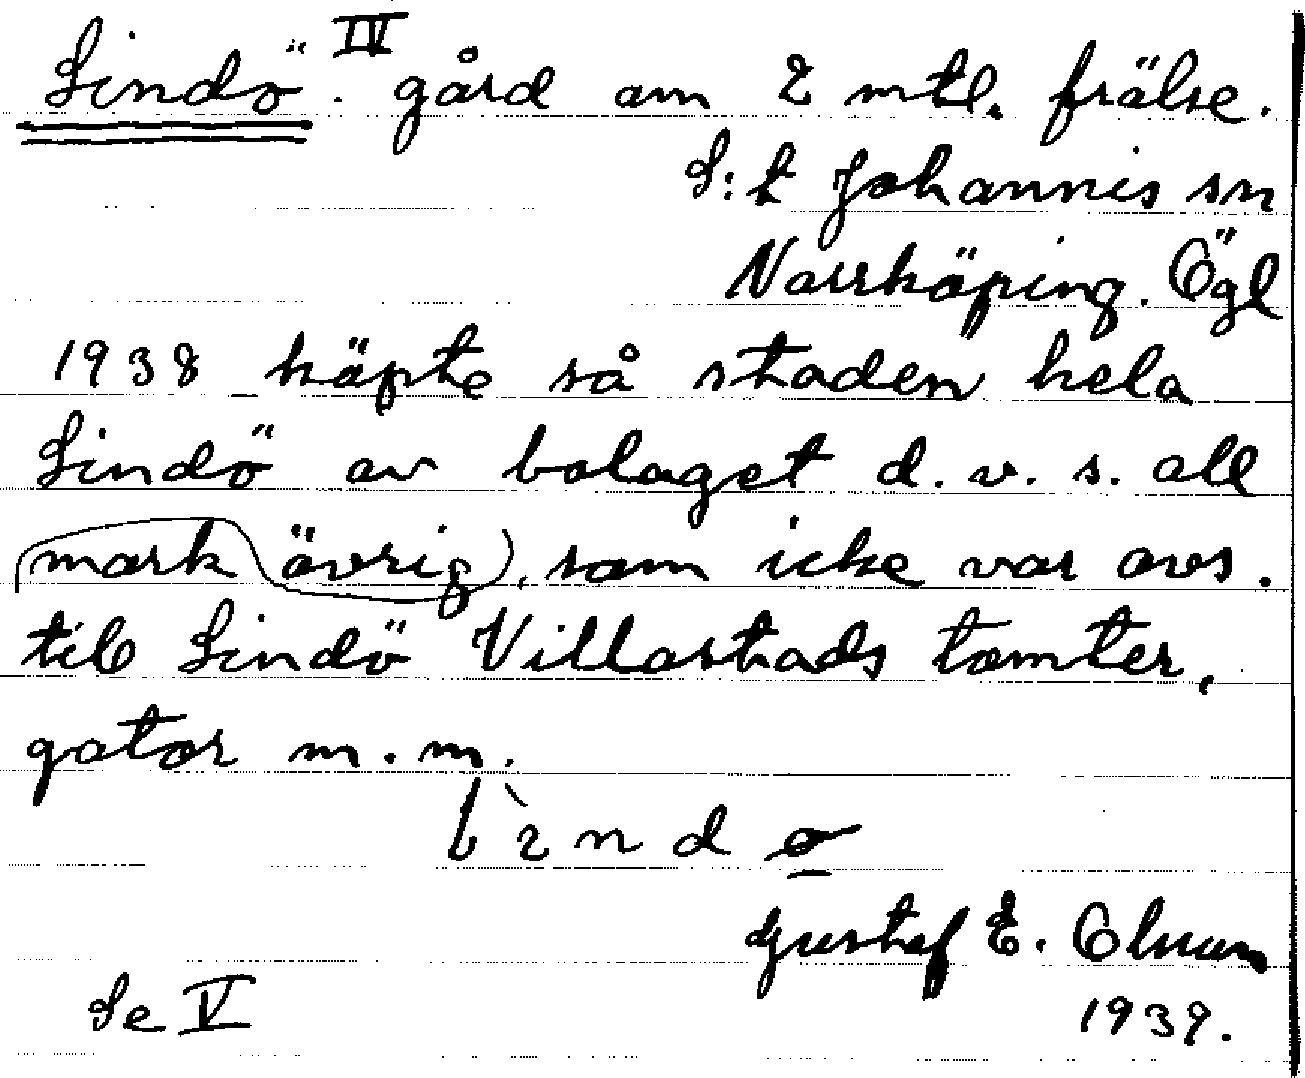 Lindö. IV gård om 2 mtl. frälse.
S:t Johannis sn
Norrköping. Ögl
1938 köpte så staden hela
Lindö av bolaget d. v. s. all
mark övrig, som icke var avs.
till Lindö Villastads tomter,
gator m.m.
Gustaf E. Olsson
Se V 1939.